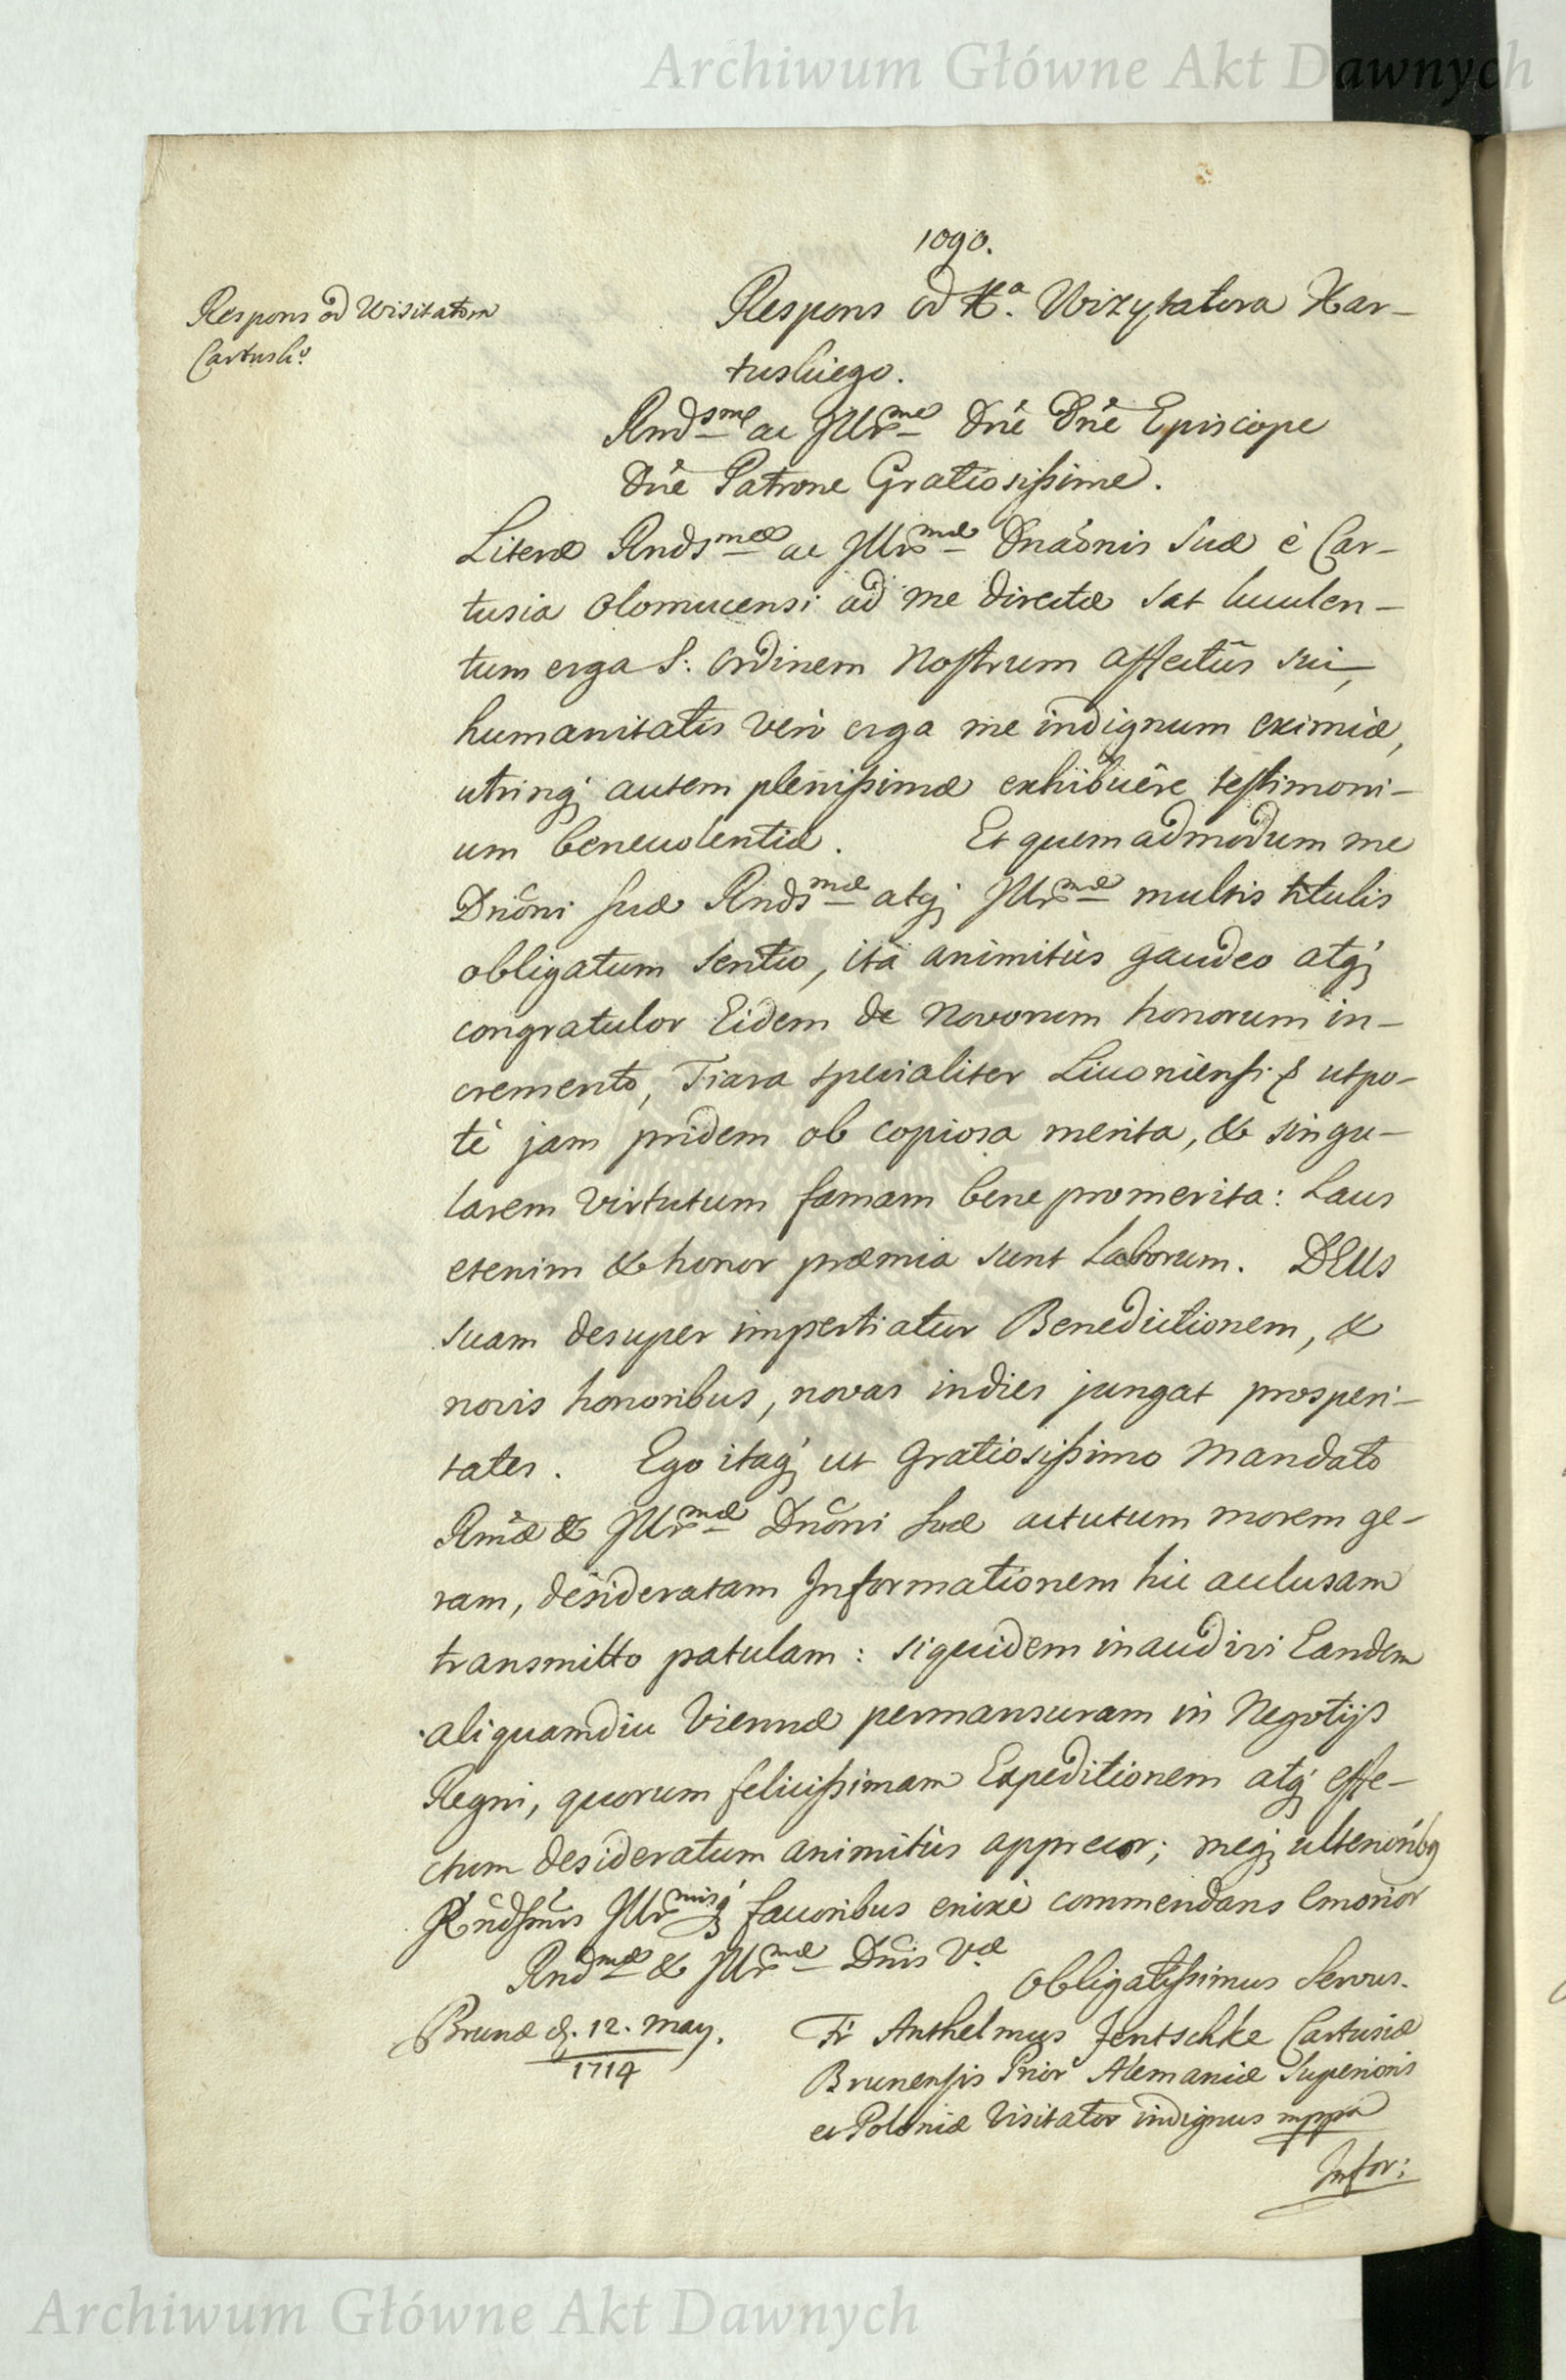 Archiwum Główne Akt Dawnych
1090.
Respons od Wisitatora
Cartusko
Respons od Xa. Wizytatora Kar-
tuskiego.
Rndsme ac Illrme Dne Dne Episcope
Dne Patrone Gratiosissime.
Literæ Rndsmæ ac Illrmæ Dnaonis Suæ è Car-
tusia Olomucensi ad me directæ sat luculen-
tum erga S: Ordinem Nostrum affectûs sui,
humanitatis verò erga me indignum eximiæ,
utrinq; autem plenissimæ exhibuêre testimoni-
um beneuolentiæ. Et quemadmodum me
Dnoni suæ Rndsmæ atq; Illrmæ multis titulis
obligatum sentio, ità animitùs gaudeo atq;
congratulor Eidem de Novorum honorum in-
cremento, Tiara specialiter Liuoniensi utpo-
tè jam pridem ob copiosa merita, & singu-
larem virtutum famam bene promerita: Laus
etenim & honor præmia sunt Laborum. DEUs
suam desuper impertiatur Benedictionem, &
novis honoribus, novas indies jungat prosperi-
tates. Ego itaq; ut Gratiosissimo Mandato
Rmæ & Illrmæ Dnoni suæ actutum morem ge-
ram, desideratam Informationem hic aclusam
transmitto patulam: siquidem inaudivi Eandem
aliquamdiu Viennæ permansuram in Negotijs
Regni, quorum felicissimam Expeditionem atq; effe-
ctum desideratum animitùs apprecor; meq; ulteriòribq
Rndsmis Illrmisq; fauoribus enixè commendans emorior
Rndmæ & Illrmæ Dnis Væ
Obligatissimus Servus.
Brunæ d. 12. May.
1714
Fr Anthelmus Jentschke Cartusiæ
Brunensis Prior Alemaniæ Superioris
et Poloniæ Visitator indignus mppa
Infor:
Archiwum Główne Akt Dawnych